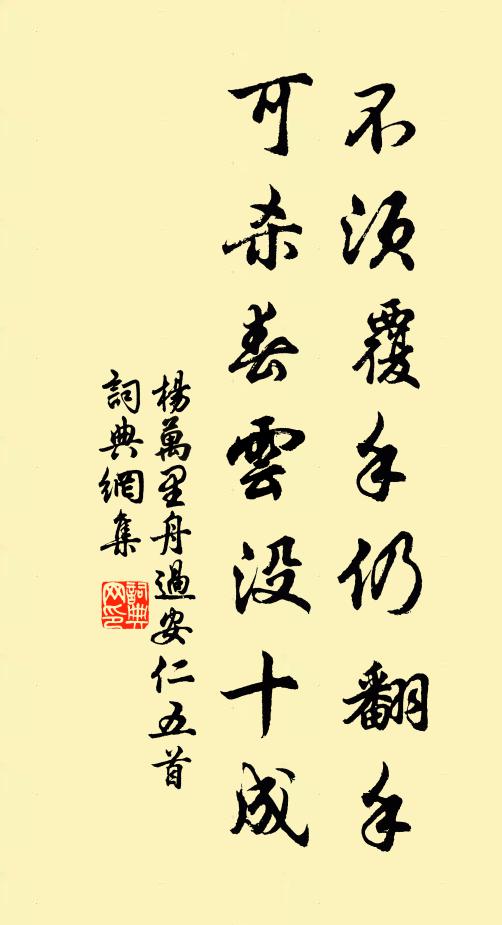 不須覆手仍翻手
可杀春雲没十成
楊萬里舟過安仁五首
詞典網集
詞典网印